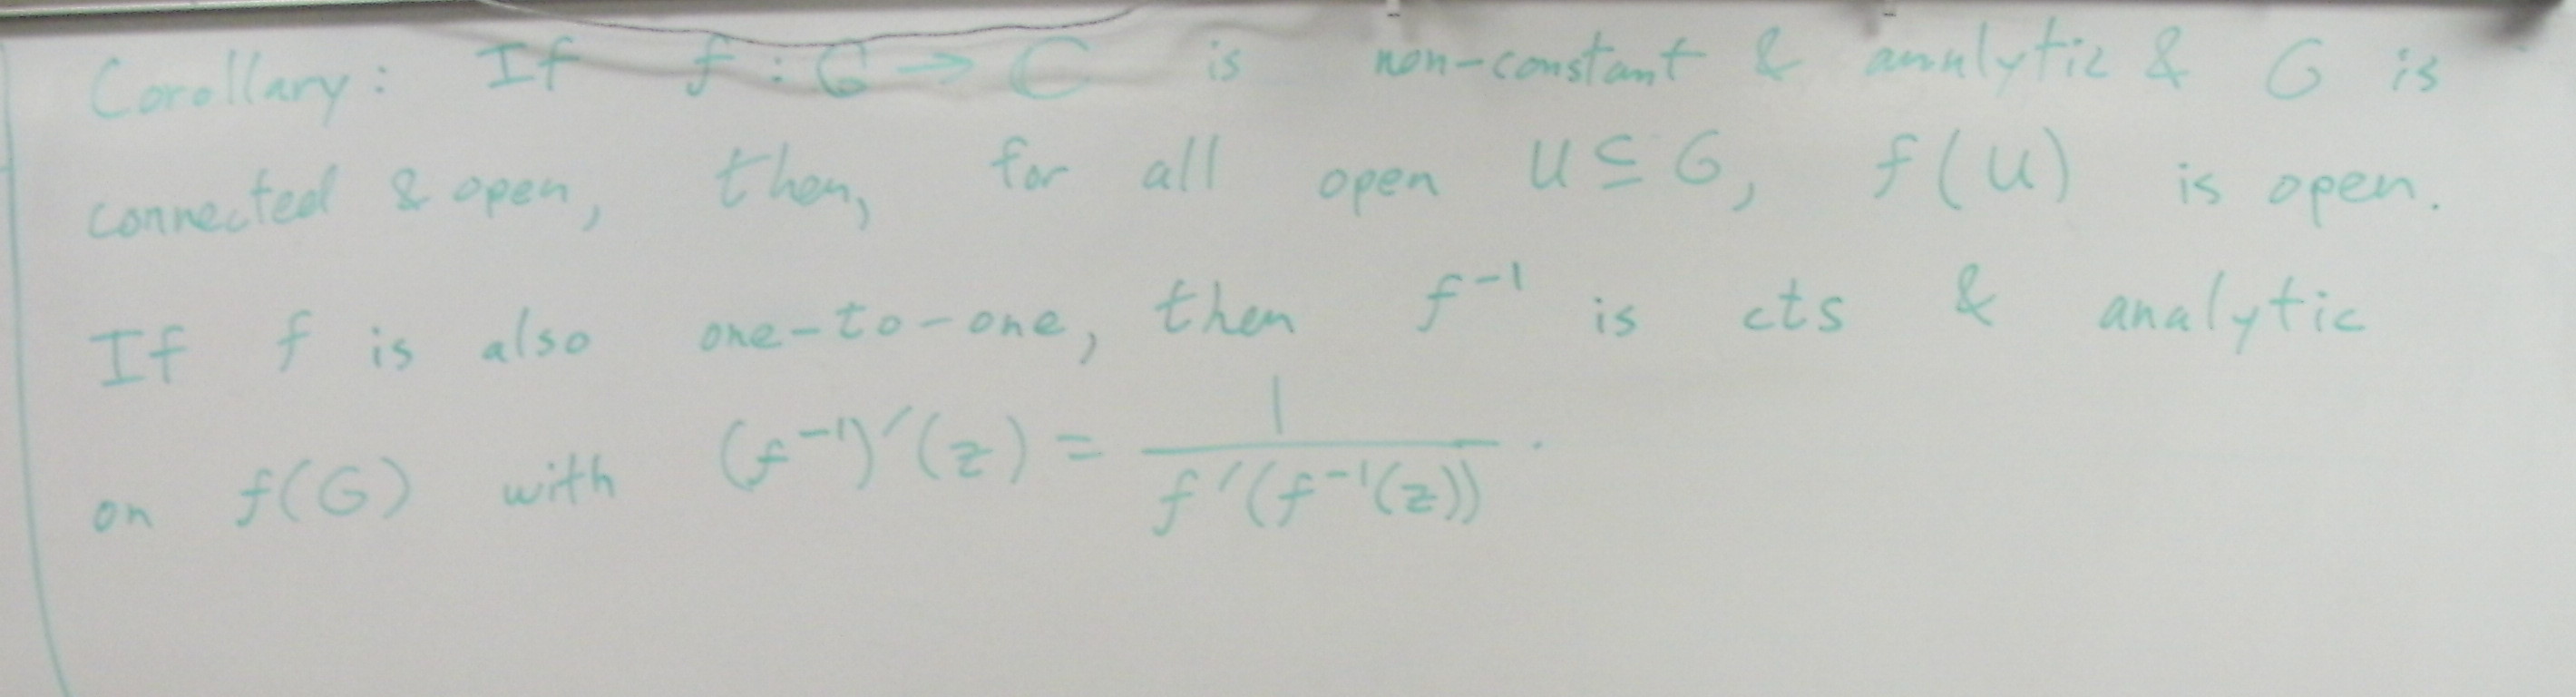 Corollary: If f : G → ℂ is non-constant & analytic & G is
connected & open, then, for all open U ⊆ G, f(U) is open.
If f is also one-to-one, then f⁻¹ is cts & analytic
on f(G) with (f⁻¹)′(z) = 1 / f′(f⁻¹(z)) .